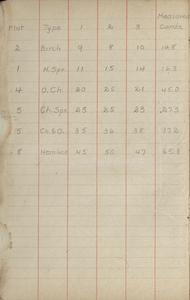 Plot Type 1 2 3 Measured
2 Birch 9 8 10
1 N.Spr. 11 15 14 16.3
4 O.Ch. 20 25 21 45.0
5 Ch.Spr. 25 25 23 27.5
5 Ch.&O. 35 36 38 37.2
8 Hemlock 45 50 47 65.8